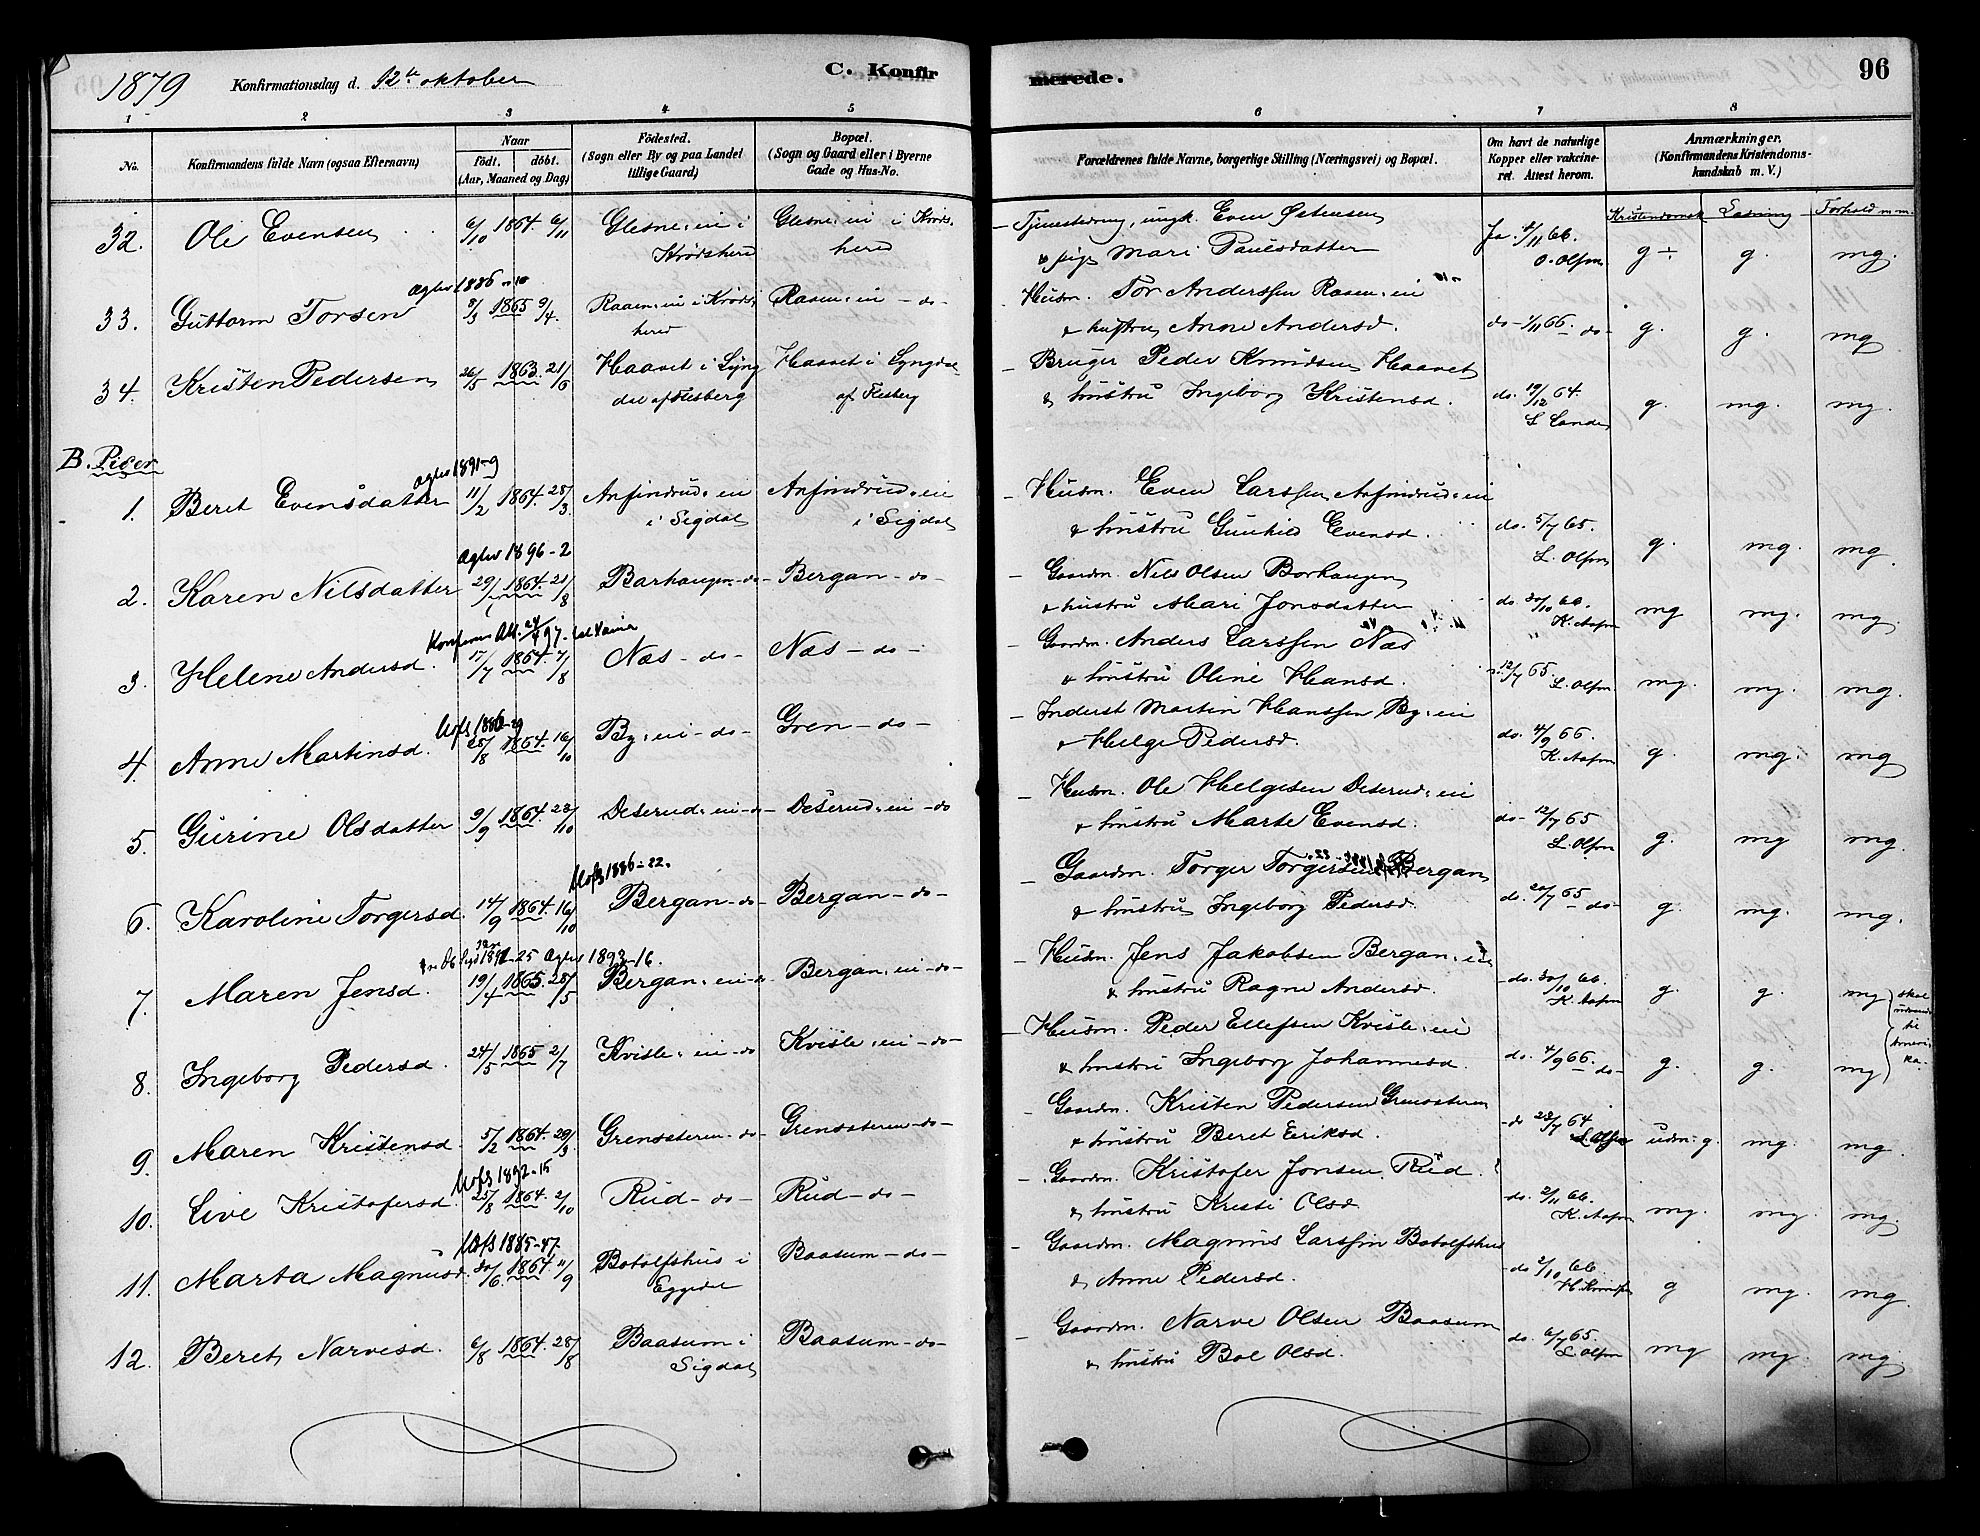 1879 Konfirmationsdag d. 12te oktober C. Konfir merede. 96
1 2 3 4 5 6 7 8
No. Konfirmandens fulde Navn (ogsaa Efternavn) Naar Födested. Bopæl. Forældrenes fulde Navne, borgerlige Stilling (Næringsvei) og Bopæl. Om havt de naturlige Anmærkninger.
födt. döbt. (Sogn eller By og paa Landet (Sogn og Gaard eller i Byerne Kopper eller vakcine- (Konfirmandens Kristendoms-
(Aar, Maaned og Dag) tillige Gaard) Gade og Hus-No. ret. Attest herom. kundskab m. V.)
Kristendomsk Læsning Forhold m. m.
32. Ole Evensen 6/10 1864. 6/11 Glesne:ei i Glesne:ei i Krøds- Tjenestedreng, ungk. Even Østensen Ja. 4/11 66.
Krødsherd herd & pige Mari Paulsdatter O. Olsen g÷ g. mg.
agter 1886-10
33. Guttorm Torsen 8/3 1865 9/4. Raaen:ei i Krøds Raaen:ei -do- Husm. Tor Anderssen Raaen:ei
herd & hustru Anne Andersd. do- 1/11 66. do- g. g. mg
34. Kristen Pedersen 26/5 1863. 21/6 Haavet i Lyng Haavet i Lyngdal Bruger Peder Knudsen Haavet
dal af Flesberg af Flesberg & hustru Ingeborg Kristensd. do. 19/12 64. g. mg. mg.
B. Piger
agter 1891-9
1. Beret Evensdatter 11/2 1864. 28/3. Anfindrud:ei Anfindrud:ei Husm. Even Larssen Anfindrud:ei
i Sigdal i Sigdal & hustru Gunhild Evensd. do. 5/7 65. L. Olsen g. mg. mg
agter 1896-2
2. Karen Nilsdatter 29/7 1864. 21/8 Borhaugen-do- Bergan-do- Gaardm. Nils Olsen Borhaugen
& hustru Mari Jonsdatter do. 30/10 66. mg mg. mg.
3. Helene Andersd. 17/7 1864. 7/8 Næs-do- Næs-do- Gaardm. Anders Larssen Næs
& hustru Oline Hansd. 12/7 65. L. Olsen mg. mg. mg.
1886-29
4. Anne Martinsd. 25/8 1864. 16/10 By:ei-do- Gren-do- Inderst Martin Hanssen By:ei
& Helge Pedersd. do. 4/9 66. g. mg. mg
5. Gurine Olsdatter 9/9 1864. 23/10 Deserud:ei-do Deserud:ei-do Husm. Ole Helgesen Deserud:ei
& hustru Marte Evensd. do- 12/7 65 L. Olsen g. mg mg.
1886-22.
6. Karoline Torgersd. 14/9 1864. 16/10 Bergan-do- Bergan-do- Gaardm. Torger Torgersen Bergan
& hustru Ingeborg Pedersd. do. 20/7 65 do- g. mg. mg.
agter 1893-16.
7. Maren Jensd. 19/4 1865. 28/5 Bergan:ei-do Bergan:ei-do- Husm. Jens Jakobsen Bergan:ei
& hustru Ragne Andersd. do. 30/10 66. g. g. mg skal udvandre til Amerika.
8. Ingeborg Pedersd. 24/5 1865 2/7 Kvisle:ei-do Kvisle:ei-do- Husm. Peder Ellefsen Kvisle:ei
& hustru Ingeborg Johannesd. do. 4/9 66. do- g. g. mg
9. Maren Kristensd. 5/2 1864. 29/3 Grensateren-do- Grensateren-do- Gaardm. Kristen Pedersen Grensateren
& hustru Beret Eriksd. do 23/7 64 L. Olsen udm. g. mg. mg.
1892-15
10. Live Kristofersd. 25/8 1864. 2/10 Rud-do- Rud-do- Gaardm. Kristofer Jonsen Rud.
& hustru Kristi Olsd do. 2/11 66. mg. mg. mg.
1885-47.
11. Marta Magnusd. 30/6 1864. 11/9 Botolfshus i Baasum-do- Gaardm. Magnus Larssen Botolfshus
Eggedal & Anne Pedersd. do 2/10 66. H. Knudsen g mg. mg.
12. Beret Narvesd. 6/8 1864. 28/8 Baasum i Baasum-do- Gaardm. Narve Olsen Baasum
Sigdal & hustru Bol Olsd. do. 6/7 65. L. Olsen mg mg. mg.